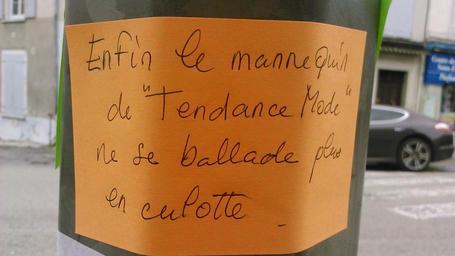 Enfin le mannequin
de "Tendance Mode"
ne se ballade plus
en culotte